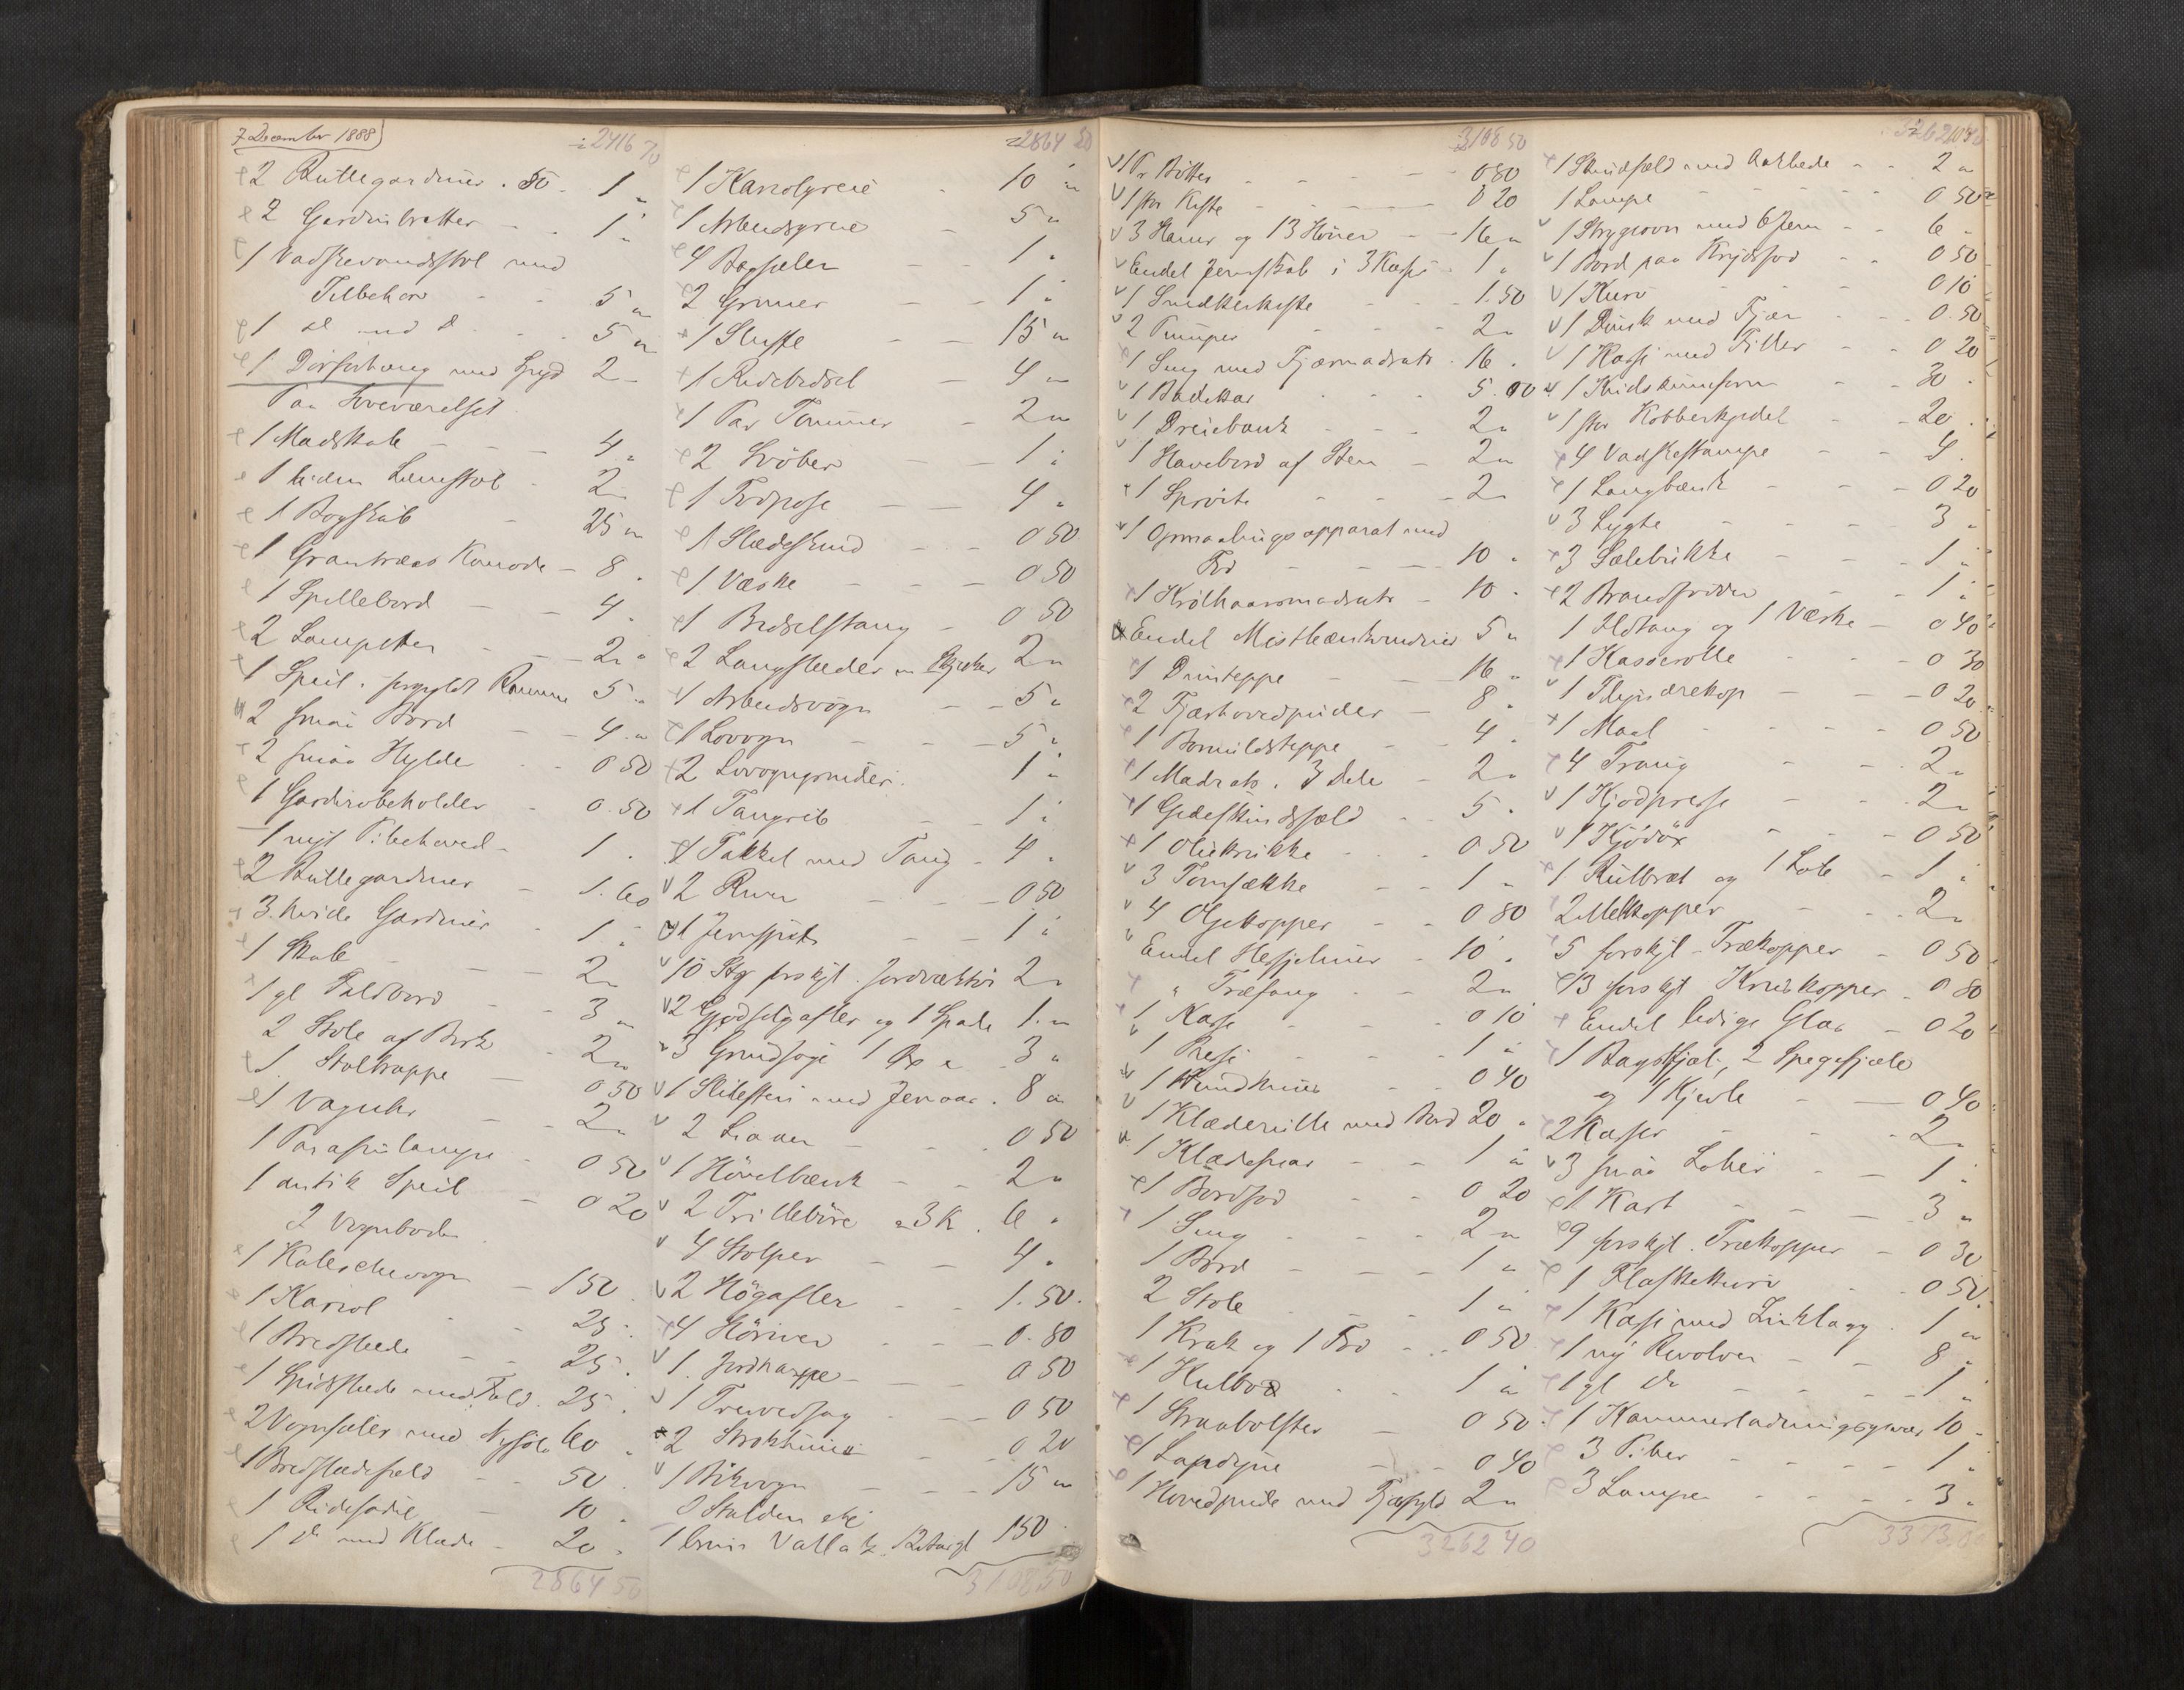 7 December 1888
2416 70
2 Rullegardiner . 50 - 1 "
2 Gardinbrætter - - 1 "
1 Vadskevandsstol med
Tilbehør - - 5 "
1 do med do - - 5 "
1 Dørforhæng med Spyd 2 -
Paa Soveværelset
1 Madskab - - 4 "
1 liden Lænestol - 2 "
1 Bogskab - 25 "
1 Grantræes Komode - 8 "
1 Spillebord - - 4 "
2 Lampetter - - 2 "
1 Speil i forgyldt Ramme 5 "
2 smaa Bord - - 4 "
2 smaa Hylder - - 0 50
1 Garderobeholder - 0.50
1 nyt Pibehoved - 1 "
2 Rullegardiner - 1.60
3 hvide Gardiner - 1 "
1 Skab - - 2 "
1 gl Foldbord - 3 "
2 Stole af Birk - 2 "
1 Stoltrappe - 0 50
1 Vaguhr - 2 "
1 Parafinlampe - 0 50
1 antik Speil - 0 20
I Vognboden
1 Kaleschevogn - 150 "
1 Kariol - 25 "
1 Bredslæde - - 25 "
1 Spidsslæde med Fæld 25 "
2 Vognsæler med Nysølv 60 "
1 Bredslædefæld - - 50 "
1 Ridesadel - 10 "
1 do med Klæde - 20 "
2864 50
2864 50
1 Kariolgreie - 10 "
1 Arbeidsgreie - 5 "
4 Bogsæler - - 1 "
2 Grimer - - 1 "
1 Sluffe - - 15 "
1 Ridebidsel - 4 "
1 Par Tømmer - 2 "
2 Svøber - - 1 "
1 Fodpose - - 4 "
1 Slædeskind - - 0 50
1 Væske - - - 0 50
1 Bidselstang - 0 50
2 Langslæder m Skjæker 2 "
1 Arbeidsvogn - - 5 "
1 Lovogn - - - 5 "
2 Lovogngrinder - 1 "
1 Tangrib - - 1 "
1 Takkel med Taug - 4 "
2 River - - - 0 50
1 Jernspit - - 1 "
10 Stk forskjl. Jordrækker 2 "
2 Gjødselgafler og 1 Spade 1. "
3 Grindsage 1 Øx - 3 "
1 Slibesten med Jernaar . 8 "
2 Leaaer - - - 0 50
1 Høvelbænk - - 2 "
2 Trillebøre a 3 K. 6 "
4 Stolper - - 4 "
2 Høgafler - - 1.50.
4 Høriver - - 0.80
1 Jordharpe - - 0 50
1 Trævedsag - - 0 50
2 - - 0 20
1 - - 15 "
I Stalden
1 brun Vallak 12 Aar gl 150 "
3108.50
3108 50
1 Pr Bøtter - - - 0 80
1 stor Kiste - - - 0 20
3 Haner og 13 Høner - - 16 "
Endel Jernskab i 3 Kasser - 1 "
1 Snedkerkiste - - - 1.50
2 Pumper - - - 2 "
1 Seng med Fjærmadrats . 16 "
1 Badekar - - - 5.00
1 Dreiebænk - - - 2 "
1 Havebord af Sten - 2 "
1 Sprøite - - - 2 "
1 Opmaalingsapparat med
Fod - - - 10 "
1 Krølhaarsmadrats - 10 "
Endel Mistbænkvinduer 5 "
1 Duntæppe - - 16 "
2 Fjærhovedpuder - 8 "
1 Bomuldstæppe - 4 "
1 Madrats i 3 Dele - 2 "
1 Gedeskindsfæld - - 5 "
1 Oliekrukke - - 0 50
3 Tomsække - - 1 "
4 Øsekopper - - 0 80
Endel Hesjeliner - 10 "
" Træfang - - 2 "
1 Kasse - - - 0 10
1 - - 1 "
1 - - 0 40
1 Klæderulle med Bord 20 "
1 Klædesnor - - 1 "
1 Bordfod - - 0 20
1 Seng - - - 2 "
1 Bord - - - 1 "
2 Stole - - 1 "
1 Krak og 1 Fod - - 0 50
1 - - 1 "
1 Straabolster - 0 50
1 - - 0 40
1 Hovedpude med Fjærfyld 2 "
3262 40
3262 40
1 Skindfæld med Aaklæde - - 2 "
1 Lampe - - - 0 50
1 Strygeovn med 6 Jern - - 6 "
1 Bord paa Krydsfod - - 0 50
1 Kurv - - - 0 10
1 Dunk med Tjære - - 0.50
1 Kasse med Filler - - 0 20
1 - - 30 "
1 stor Kobberkjedel - - 20 "
4 Vadskestampe - - 4 "
1 Langbænk - - - 0 20
3 Lygte - - - 3 "
3 Sælekrikke - - - 1 "
2 Brandspidder - - 1 "
1 Ildtang og 1 Væske - 0 40
1 Kasserolle - - 0 30
1 - - - 0 20
1 Maal - - - 0 50
4 Traug - - - 2 "
1 Kjødpresse - - 2 "
1 Kjødøx - - - 0 50
1 Rulbræt og 1 - 1 "
2 Melkkopper - - 2 "
5 forskjl. Trækopper - 0 50
13 forskjl Kruskopper - 0 80
Endel ledige Glas - 0 20
1 Bagstfjæl, 2 Spegefjæle
og 1 Kjevle - - 0 40
2 Kasser - - - 2 "
3 smaa - - 1 "
1 Kart - - - 3 "
9 forskjl. Trækopper - 0 30
1 Flaskekurv - - 0 50
1 Kasse med Zinklaag . 1 "
1 ny Revolver - - 8 "
1 gl do - - - 1 "
1 Kammerladningsgevær 10 "
3 Piber - - - 1 "
3 Lamper - - - 3 "